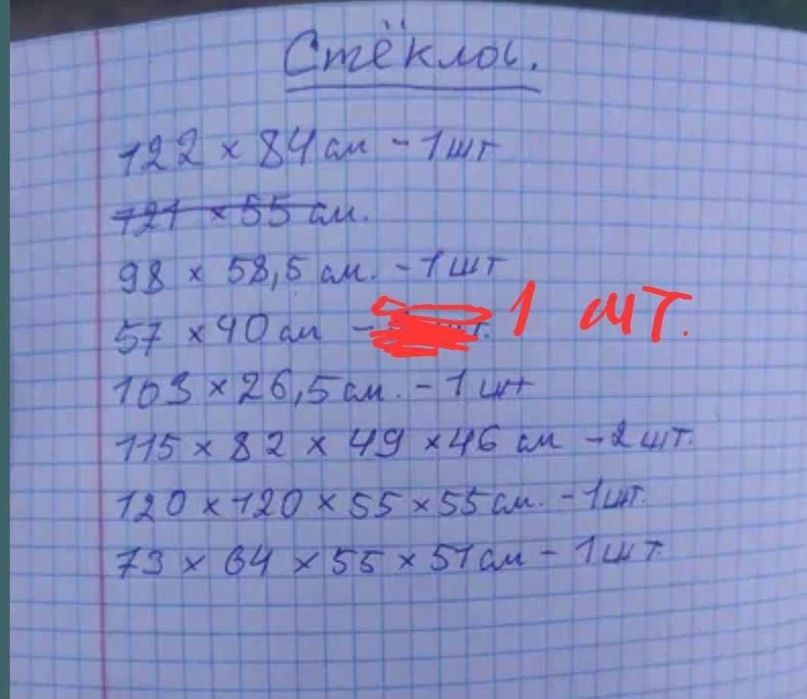 Стёкла.
122 × 84 см - 1 шт
121 × 55 см.
98 × 58,5 см. - 1 шт
57 × 40 см - 1 шт.
103 × 26,5 см. - 1 шт
115 × 82 × 49 × 46 см - 2 шт.
120 × 120 × 55 × 55 см. - 1 шт.
73 × 64 × 55 × 51 см - 1 шт